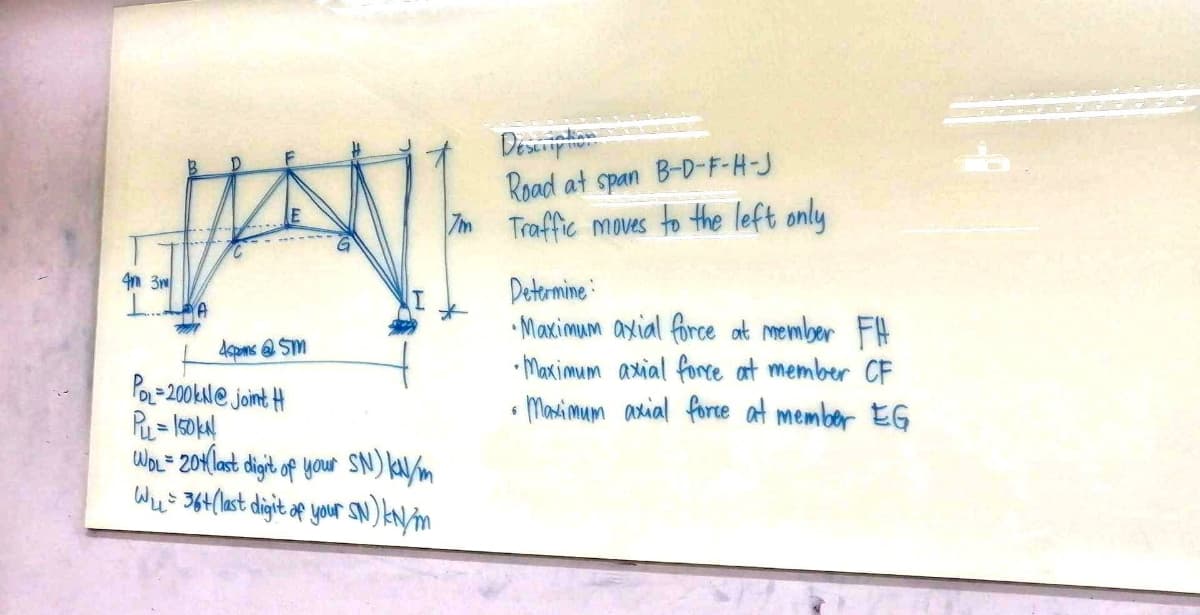 B D F H J
E
C G
7m
4m 3m
A I
4spans @ 5m
PDL=200kN@ joint H
PLL = 150kN
WDL= 20+(last digit of your SN) kN/m
WLL= 36+(last digit of your SN) kN/m
Description:
Road at span B-D-F-H-J
Traffic moves to the left only
Determine:
• Maximum axial force at member FH
• Maximum axial force at member CF
• Maximum axial force at member EG